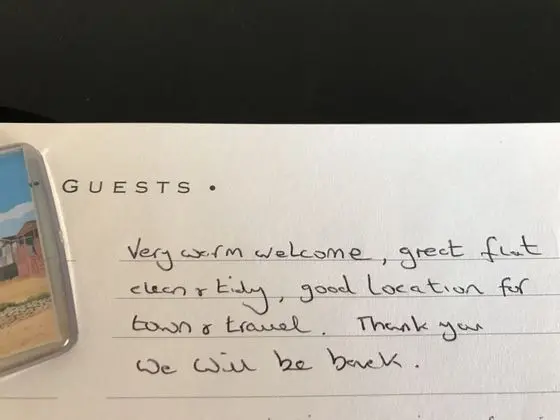 GUESTS •
Very warm welcome, great flat
clean & tidy, good location for
town & travel. Thank you
we will be back.